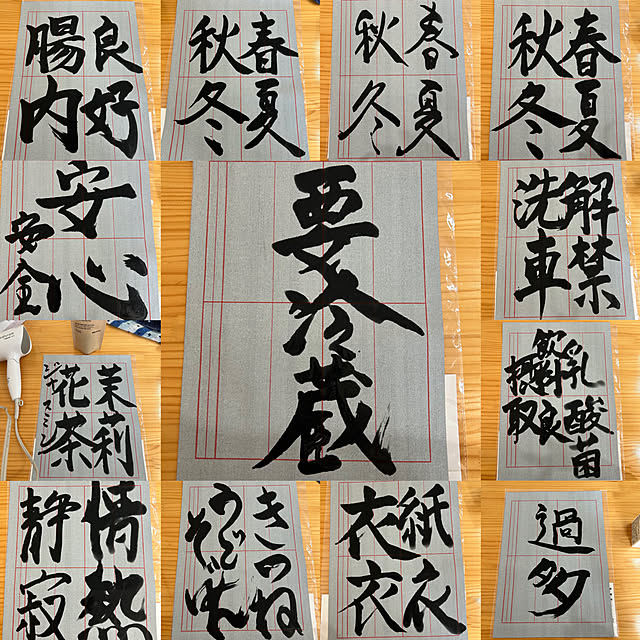 良好
腸内
春夏
秋冬
春夏
秋冬
春夏
秋冬
安心
安全
要冷蔵
解禁
洗車
茉莉
花茶
乳酸菌
摂取
情熱
静寂
きつね
紙衣
衣衣
過多